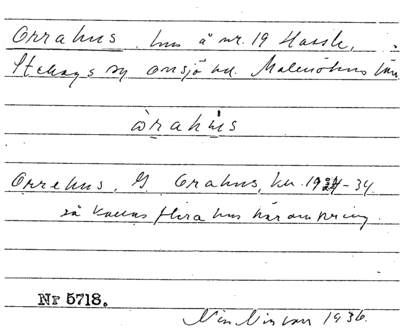 Orrahus, hus å nr. 19 Hassle,
Stehags sn Onsjö hd. Malmöhus län
òrahùs
Orrehus, Orahus, 34
så kallas flera hus häromkring.
Nr 5718.
1936.